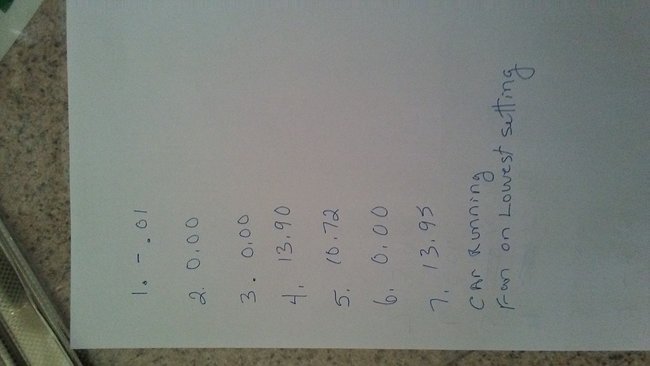 1. -.01
2. 0.00
3. 0.00
4. 13.90
5. 10.72
6. 0.00
7. 13.95
CAR Running
Fan on Lowest setting